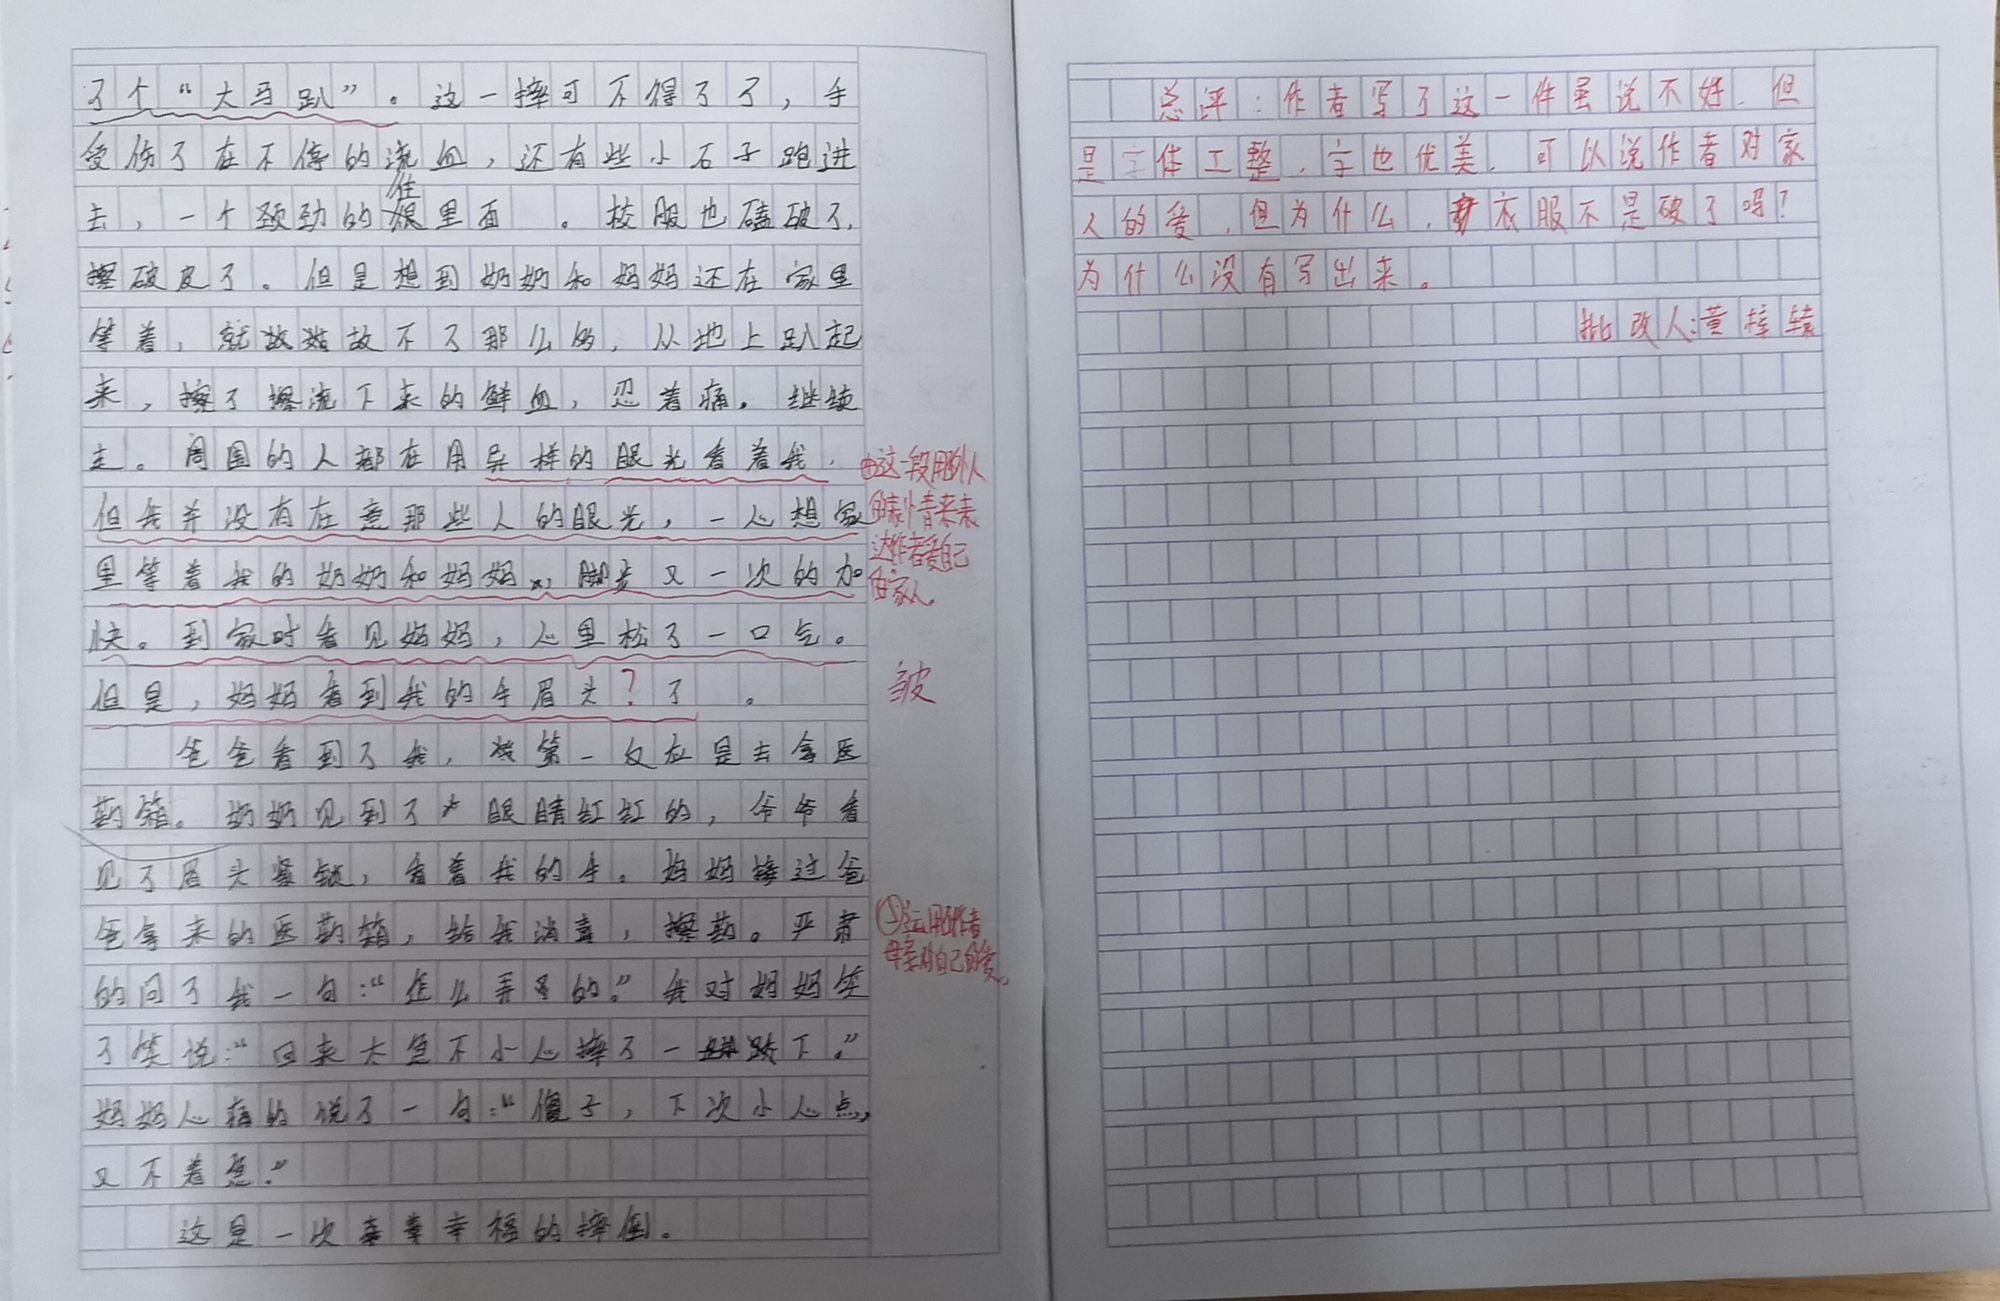 了个“大马趴”。这一摔可不得了了，手
受伤了在不停的流血，还有些小石子跑进
去，一个颈劲的往里面。校服也磕破了，
擦破皮了。但是想到奶奶和妈妈还在家里
等着，就故不了那么多，从地上趴起
来，擦了擦流下来的鲜血，忍着痛。继续
走。周围的人都在用异样的眼光看着我，
但我并没有在意那些人的眼光，一心想家
里等着我的奶奶和妈妈，脚步又一次的加
快。到家时看见妈妈，心里松了一口气。
但是，妈妈看到我的手眉头？了。
爸爸看到了我，第一反应是去拿医
药箱。奶奶见到了眼睛红红的，爷爷看
见了眉头紧锁，看着我的手。妈妈接过爸
爸拿来的医药箱，给我消毒，擦药。严肃
的问了我一句：“怎么弄的。”我对妈妈笑
了笑说：“回来太急不小心摔了一下。”
妈妈心痛的说了一句：“傻子，下次小心点，
又不着急。”
这是一次幸福的摔倒。
这一段用外人
的表情来表
达作者爱自己
的家人。
皱
②运用了作者
母亲对自己的爱。
总评：作者写了这一件虽说不好，但
是字体工整，字也优美，可以说作者对家
人的爱，但为什么，衣服不是破了吗？
为什么没有写出来。
批改人：黄